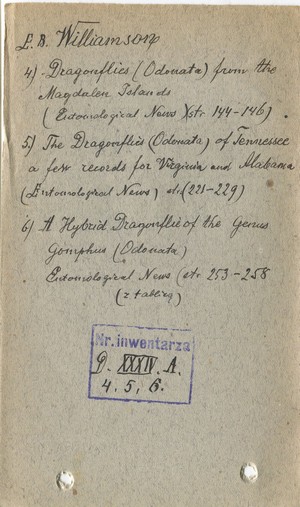 E. B. Williamson
4) Dragonflies (Odonata) from the
Magdalen Islands
(Entomological News) str 144-146)
5) The Dragonflies (Odonata) of Tennessee
a few records for Virginia and Alabama
(Entomological News) str. (221-229)
6) A Hybrid Dragonflie of the Genus
Gomphus (Odonata)
Entomological News (str. 253-258
(z tablicą)
Nr. inwentarza
D. XXXIV. A.
4. 5. 6.